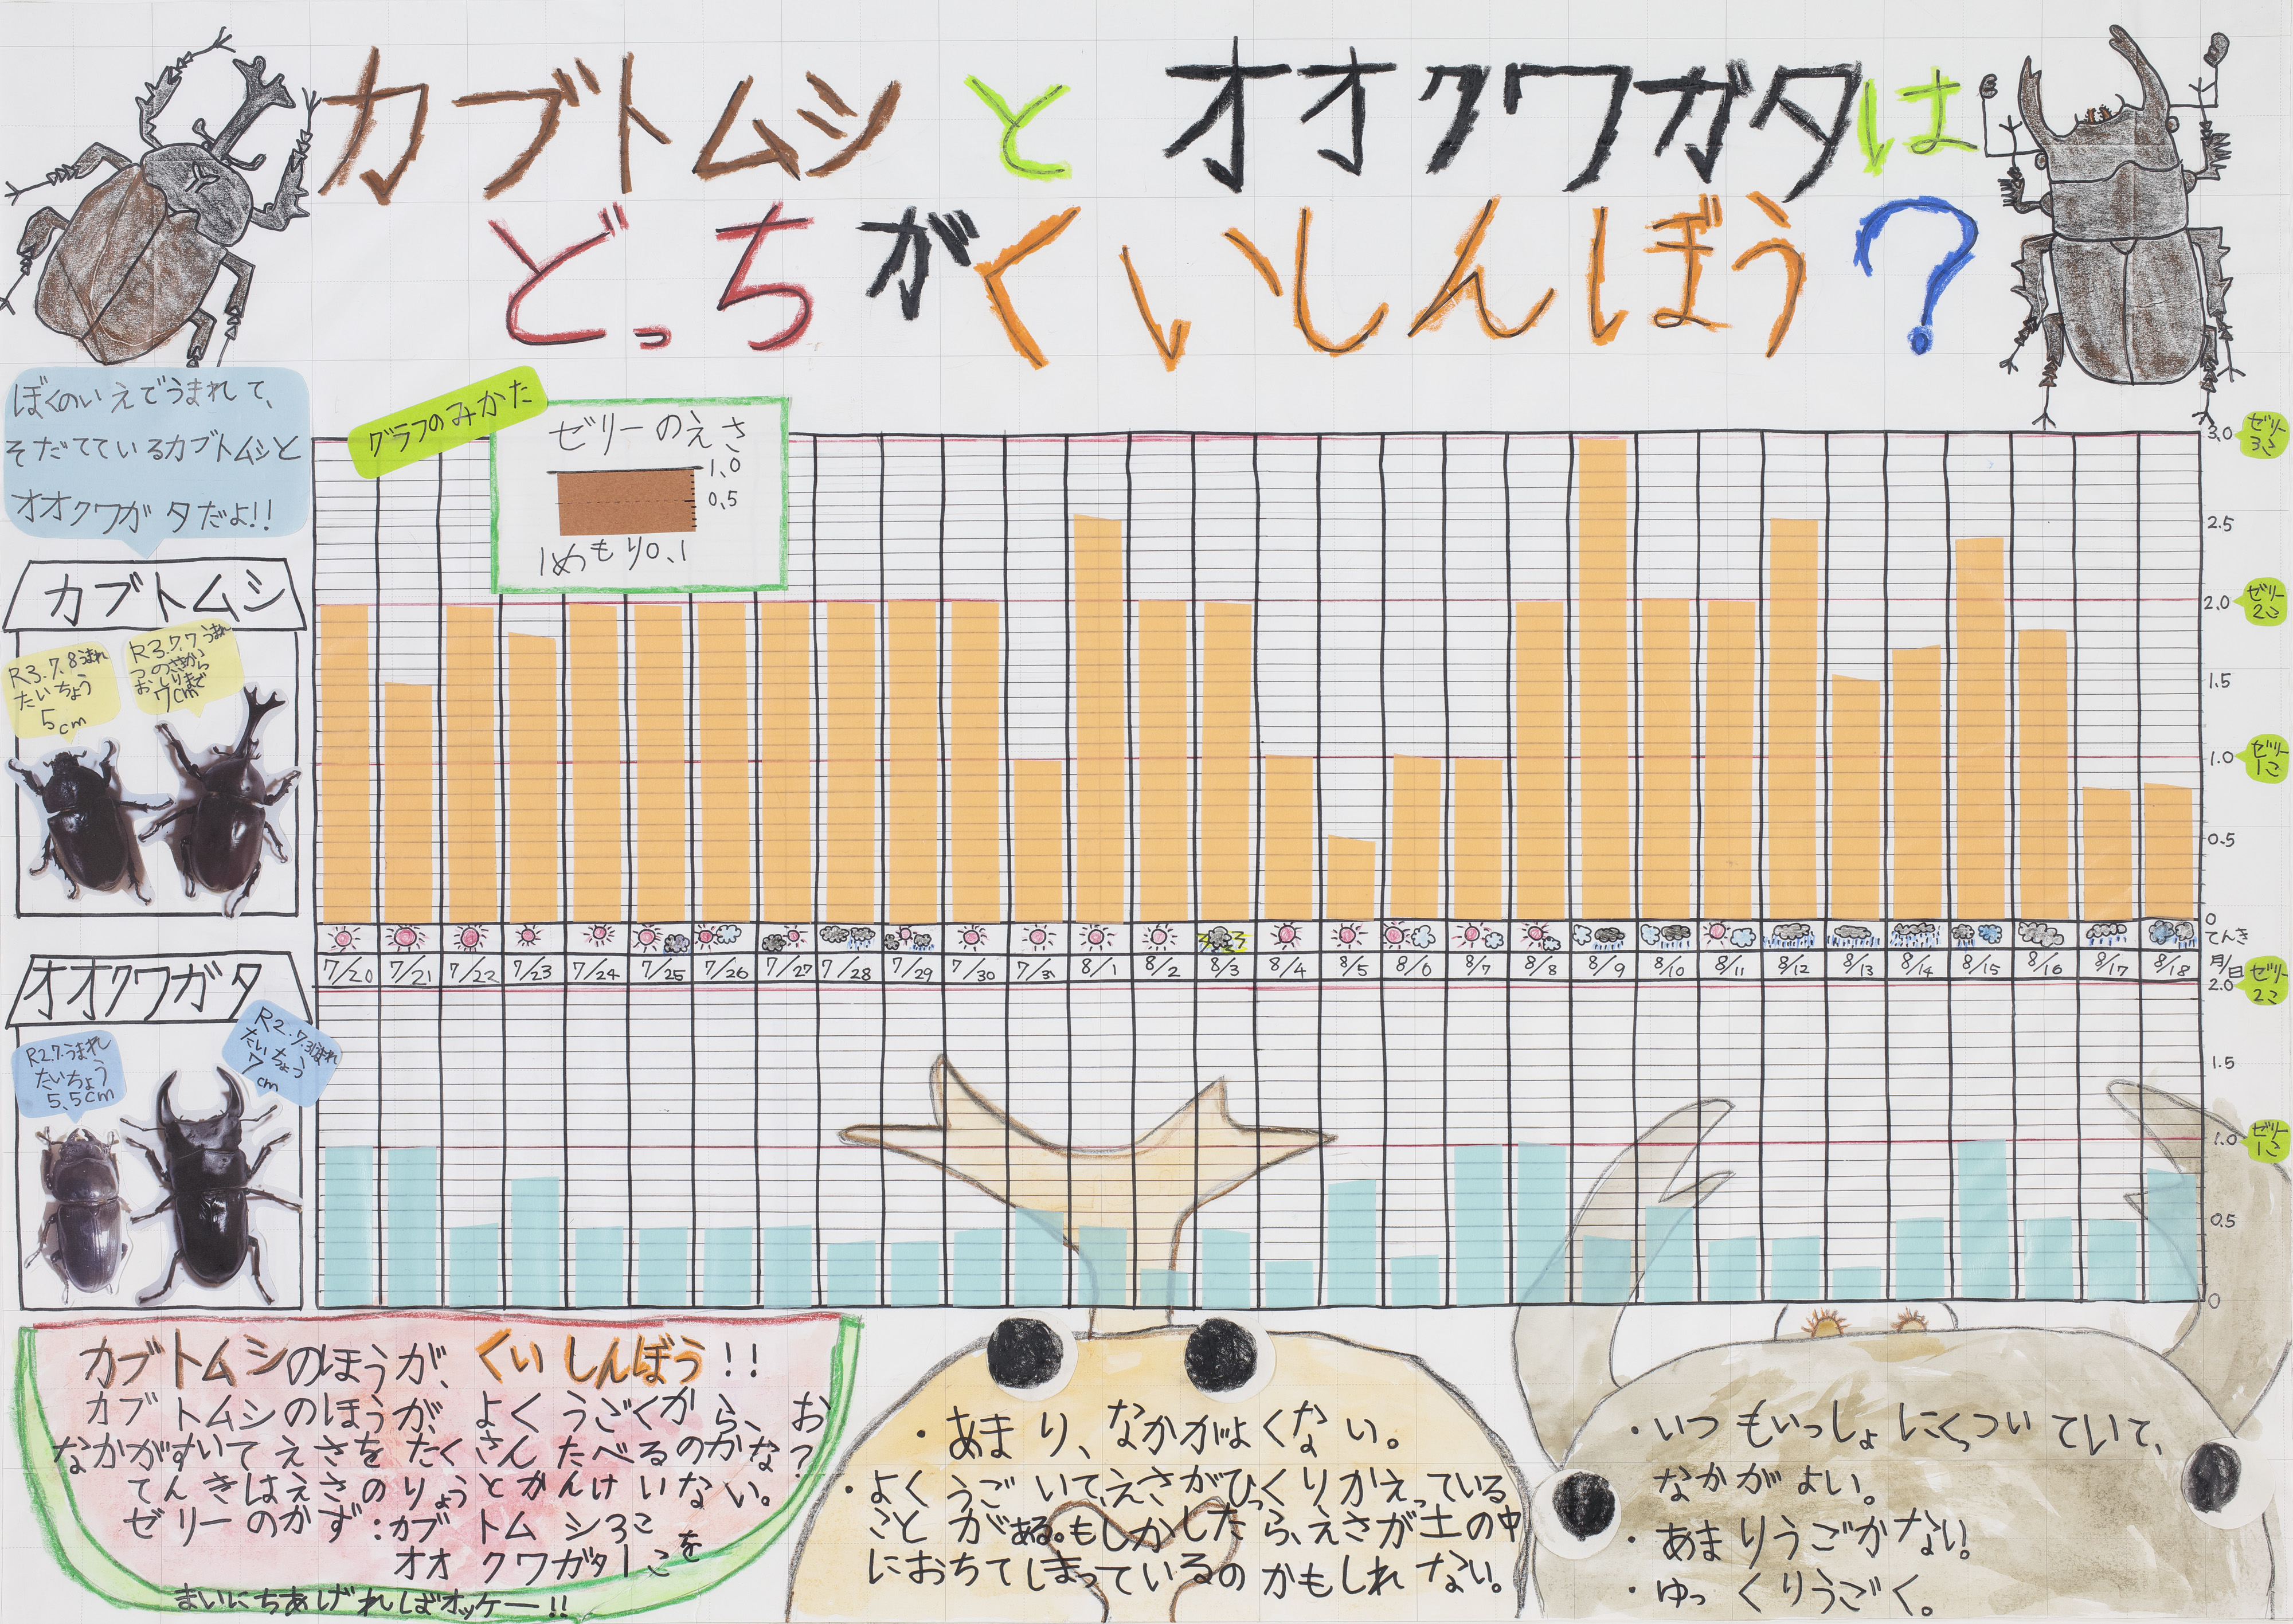 カブトムシとオオクワガタは
どっちがくいしんぼう?
ぼくのいえでうまれて、
そだてているカブトムシと
オオクワガタだよ!!
グラフのみかた
ゼリーのえさ
1.0
0.5
1めもり0.1
カブトムシ
R3.7.8うまれ
たいちょう
5cm
R3.7.7うまれ
つのさきから
おしりまで
7cm
3.0
ゼリー
3こ
2.5
2.0
ゼリー
2こ
1.5
1.0
ゼリー
1こ
0.5
0
てんき
7/20 7/21 7/22 7/23 7/24 7/25 7/26 7/27 7/28 7/29 7/30 7/31 8/1 8/2 8/3 8/4 8/5 8/6 8/7 8/8 8/9 8/10 8/11 8/12 8/13 8/14 8/15 8/16 8/17 8/18 月/日
オオクワガタ
R2.7.うまれ
たいちょう
5.5cm
R2.7.31うまれ
たいちょう
7cm
2.0
ゼリー
2こ
1.5
1.0
ゼリー
1こ
0.5
0
カブトムシのほうが、くいしんぼう!!
カブトムシのほうが、よくうごくから、お
なかがすいてえさをたくさんたべるのかな?
てんきはえさのりょうとかんけいない。
ゼリーのかず:カブトムシ3こ
オオクワガタ1こを
まいにちあげればオッケー!!
・あまり、なかがよくない。
・よくうごいて、えさがひっくりかえっている
ことがある。もしかしたら、えさが土の中
におちてしまっているのかもしれない。
・いつもいっしょにくっついていて、
なかがよい。
・あまりうごかない。
・ゆっくりうごく。